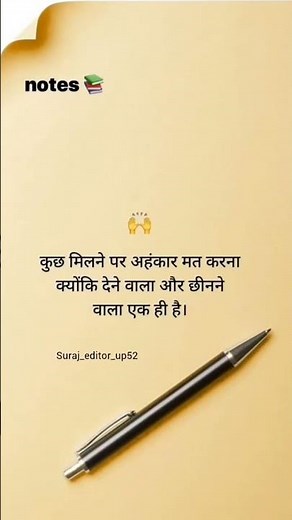 notes 📚
🙌
कुछ मिलने पर अहंकार मत करना
क्योंकि देने वाला और छीनने
वाला एक ही है।
Suraj_editor_up52